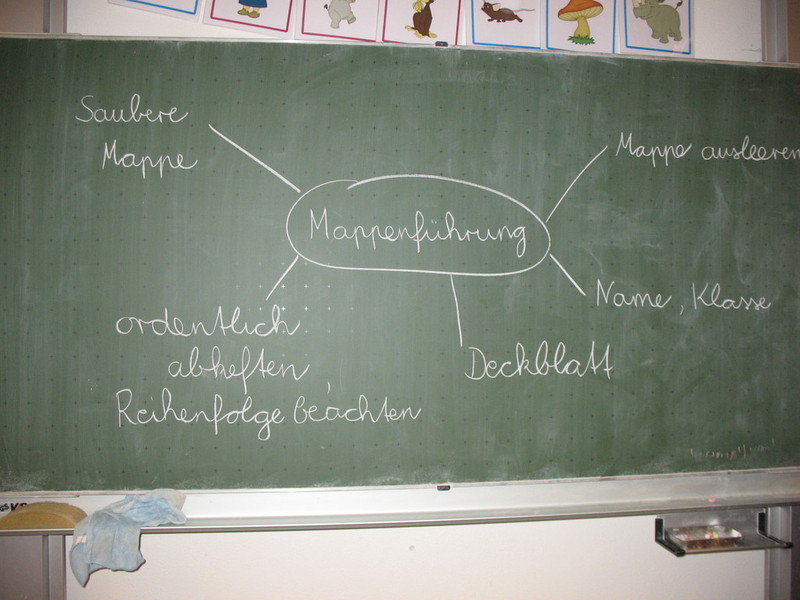 Saubere
Mappe
Mappe ausleeren
Mappenführung
Name, Klasse
ordentlich
abheften,
Reihenfolge beachten
Deckblatt